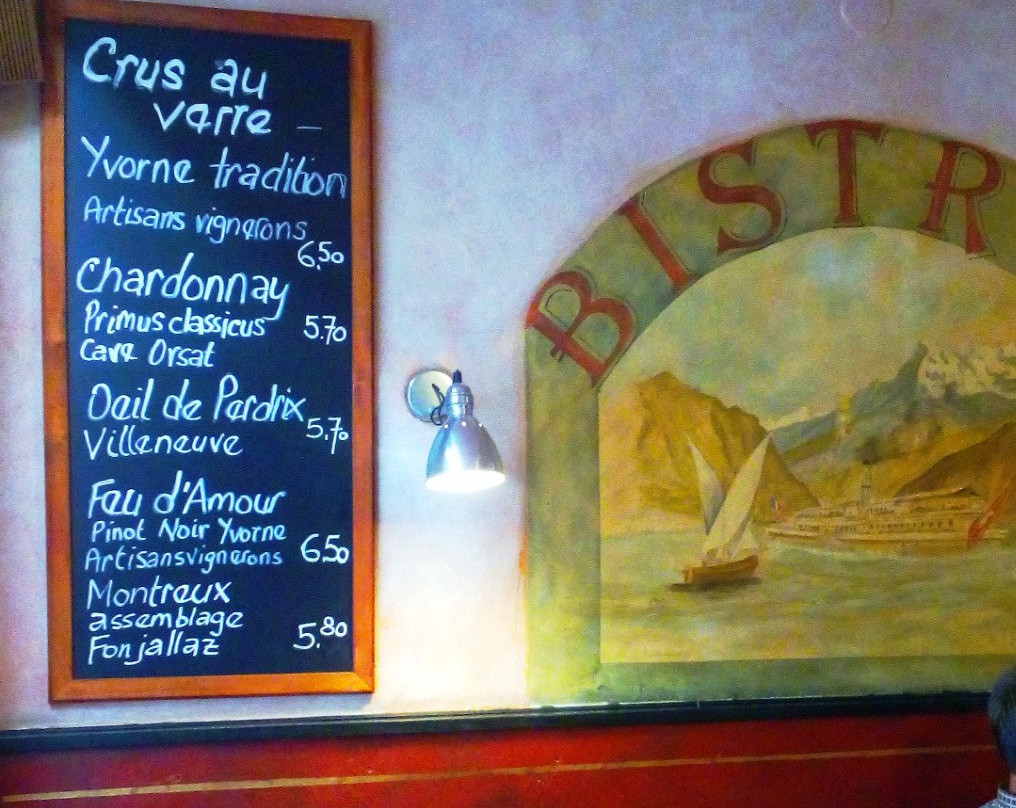 Crus au
verre
Yvorne tradition
Artisans vignerons
6.50
Chardonnay
Primus classicus 5.70
Cave Orsat
Oeil de Perdrix
Villeneuve 5.70
Feu d'Amour
Pinot Noir Yvorne
Artisans vignerons 6.50
Montreux
assemblage
Fonjallaz 5.80
BISTR